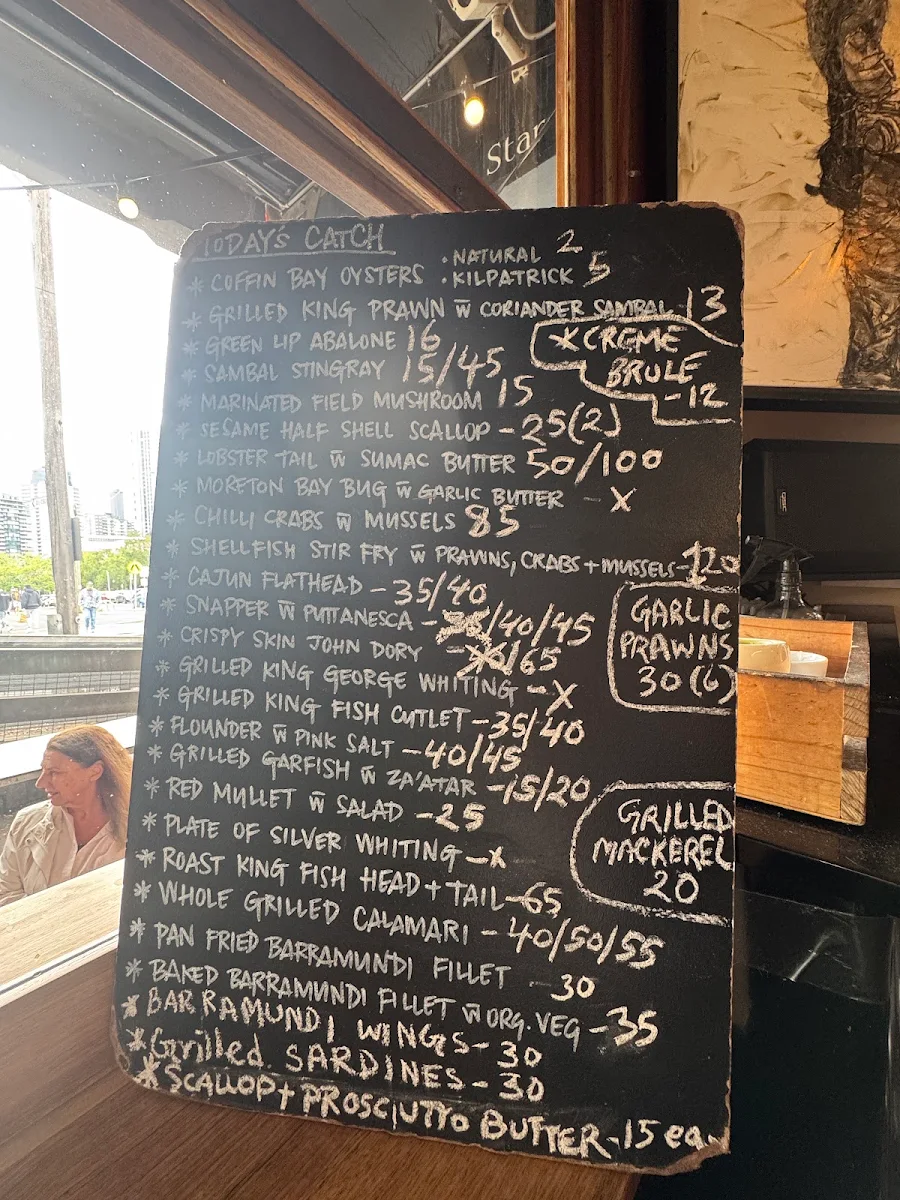 Star
TODAY'S CATCH
* COFFIN BAY OYSTERS · NATURAL 2
· KILPATRICK 5
* GRILLED KING PRAWN w̄ CORIANDER SAMBAL 13
* GREEN LIP ABALONE 16
* SAMBAL STINGRAY 15/45
* CREME
BRULE
-12
* MARINATED FIELD MUSHROOM 15
* SESAME HALF SHELL SCALLOP - 25(2)
* LOBSTER TAIL w̄ SUMAC BUTTER 50/100
* MORETON BAY BUG w̄ GARLIC BUTTER - X
* CHILLI CRABS w̄ MUSSELS 85
* SHELLFISH STIR FRY w̄ PRAWNS, CRABS + MUSSELS - 120
* CAJUN FLATHEAD - 35/40
* SNAPPER w̄ PUTTANESCA - /40/45
* CRISPY SKIN JOHN DORY - /65
* GRILLED KING GEORGE WHITING - X
GARLIC
PRAWNS
30(6)
* GRILLED KING FISH CUTLET - 35/40
* FLOUNDER w̄ PINK SALT - 40/45
* GRILLED GARFISH w̄ ZA'ATAR - 15/20
* RED MULLET w̄ SALAD - 25
* PLATE OF SILVER WHITING - X
GRILLED
MACKEREL
20
* ROAST KING FISH HEAD + TAIL - 65
* WHOLE GRILLED CALAMARI - 40/50/55
* PAN FRIED BARRAMUNDI FILLET - 30
* BAKED BARRAMUNDI FILLET w̄ ORG. VEG - 35
* BARRAMUNDI WINGS - 30
* Grilled SARDINES - 30
* SCALLOP + PROSCIUTTO BUTTER - 15 ea